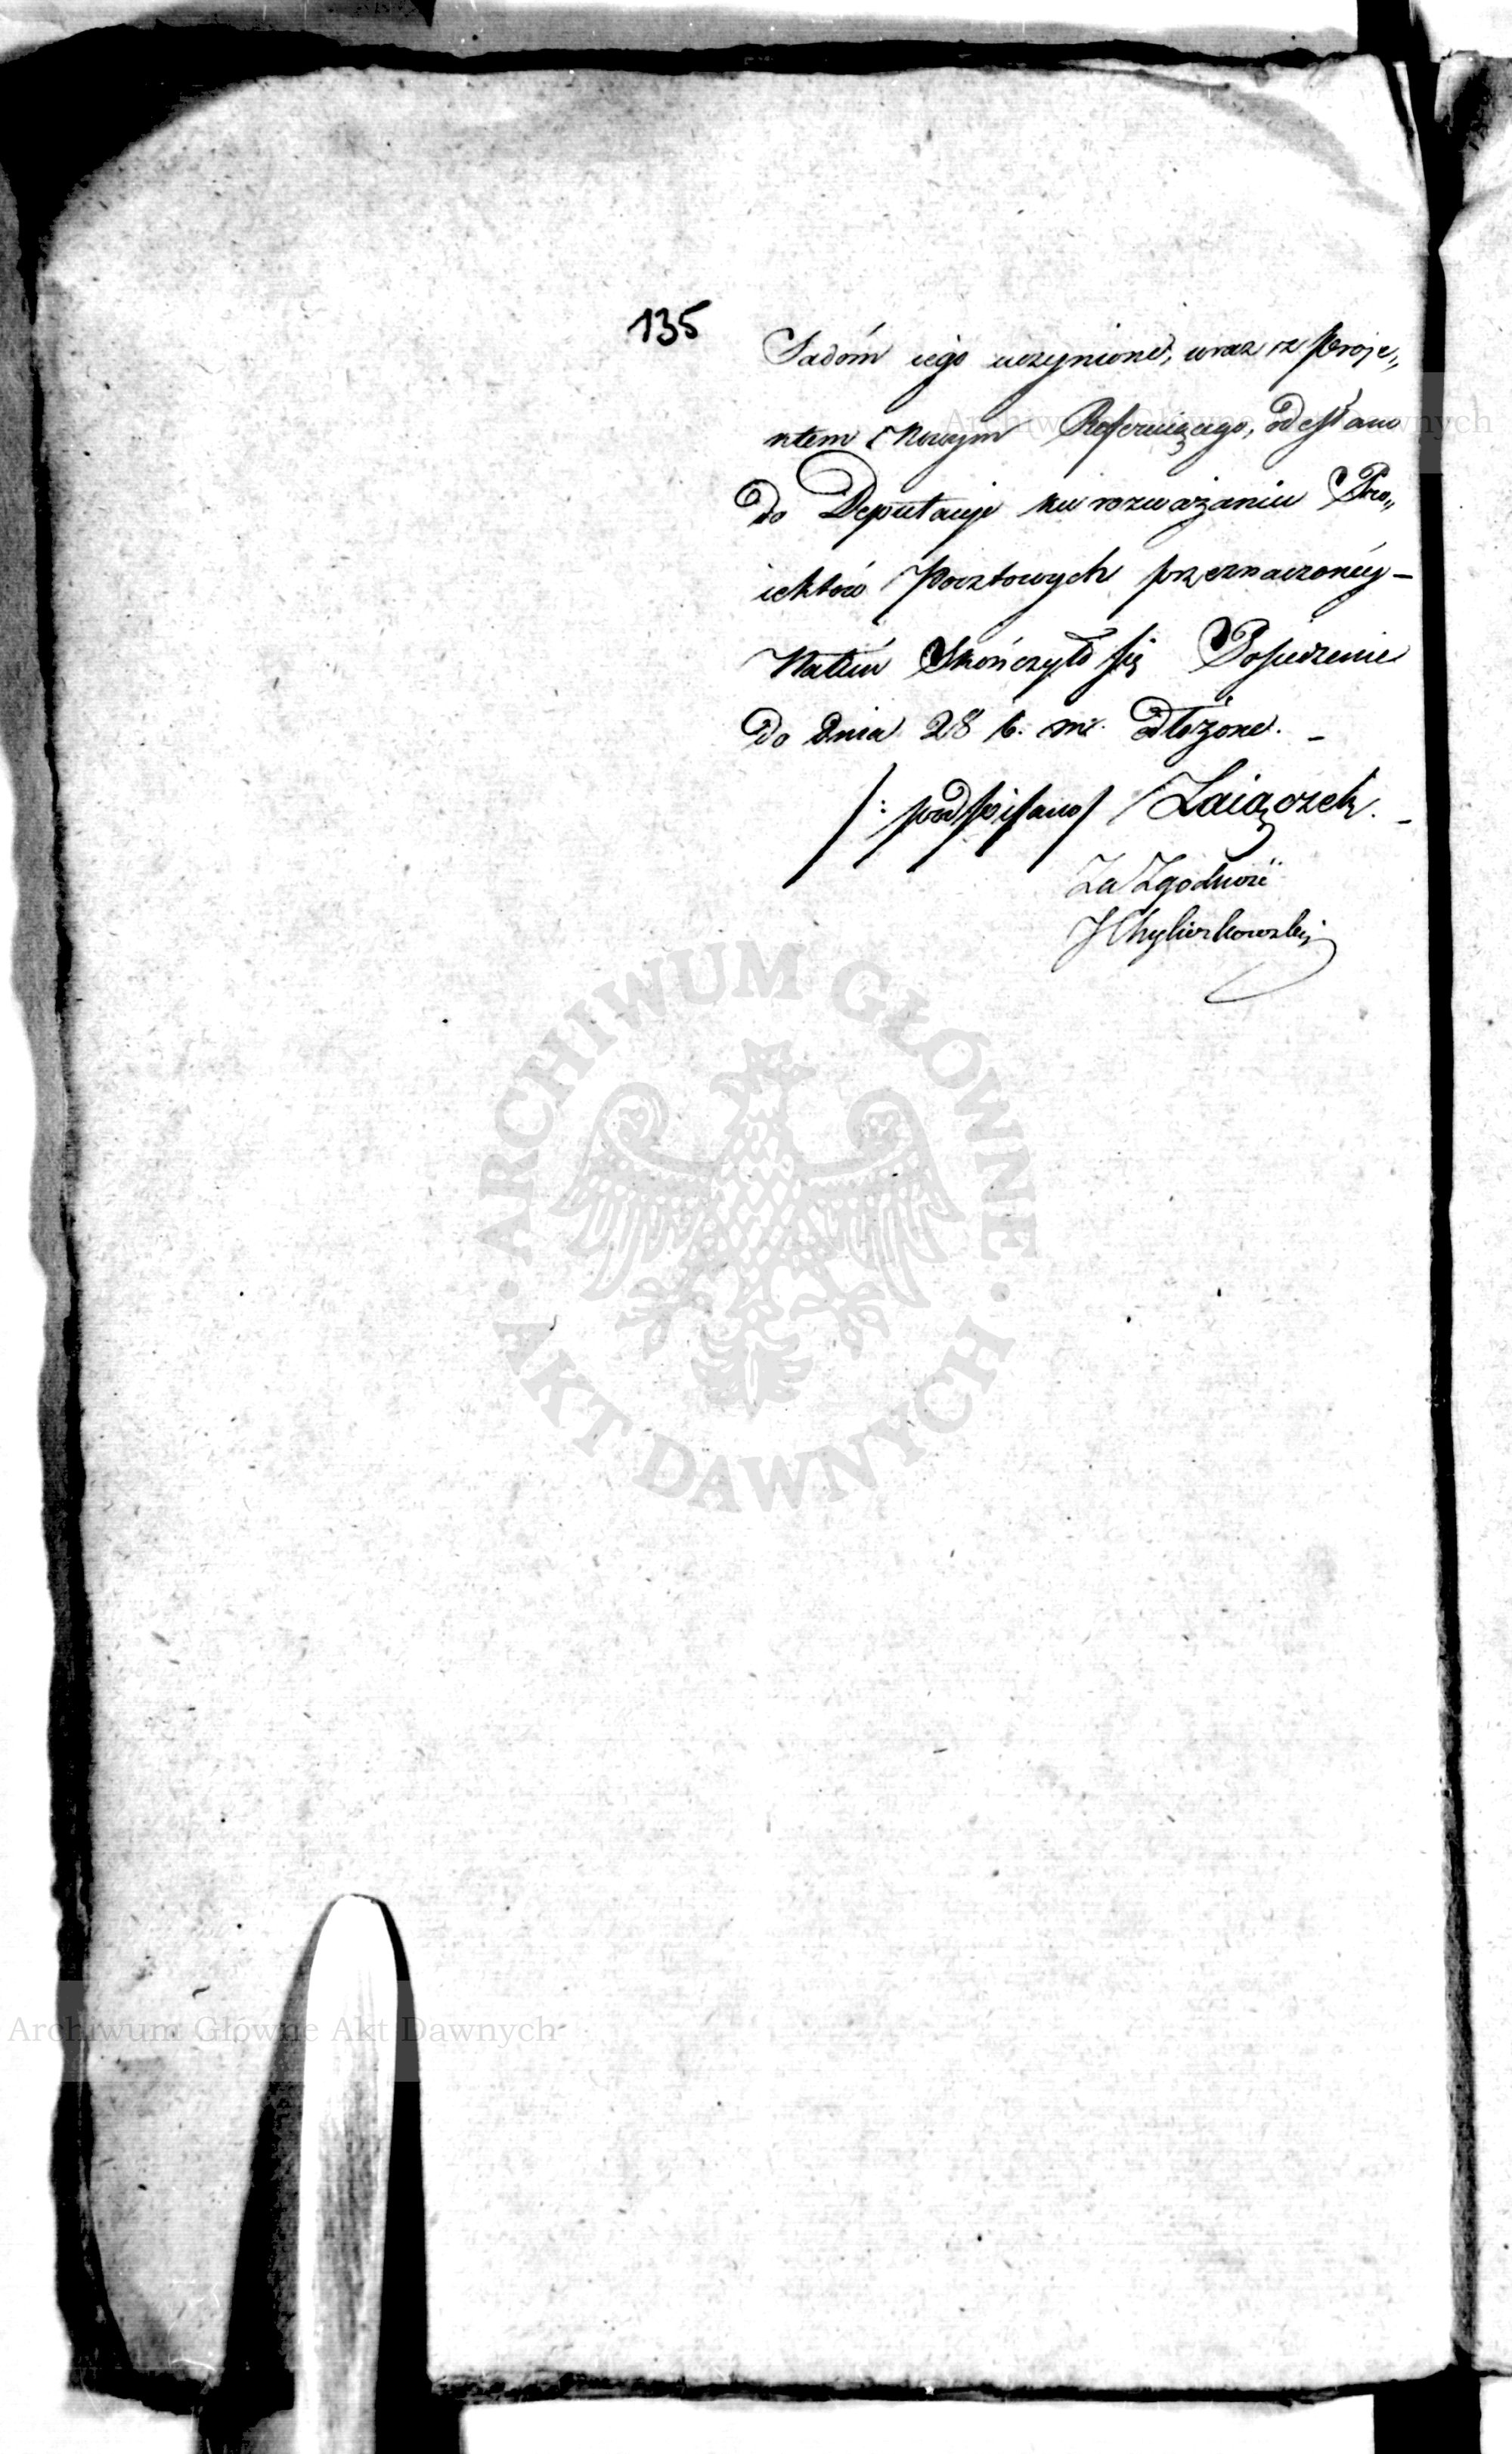 135
Sadóm iego uczynione, wraz z Proje„
ktem nowym Referuiącego, odesłano
do Deputacyi ku rozważaniu Pro„
iektów Pocztowych przeznaczonéy –
Natém Skończyło się Posiedzenie
do dnia 28 b. m. odłożone. –
/: podpisano / Zaiączek. –
Za Zgodność
Archiwum Główne Akt Dawnych
ARCHIWUM GŁÓWNE AKT DAWNYCH
Archiwum Główne Akt Dawnych